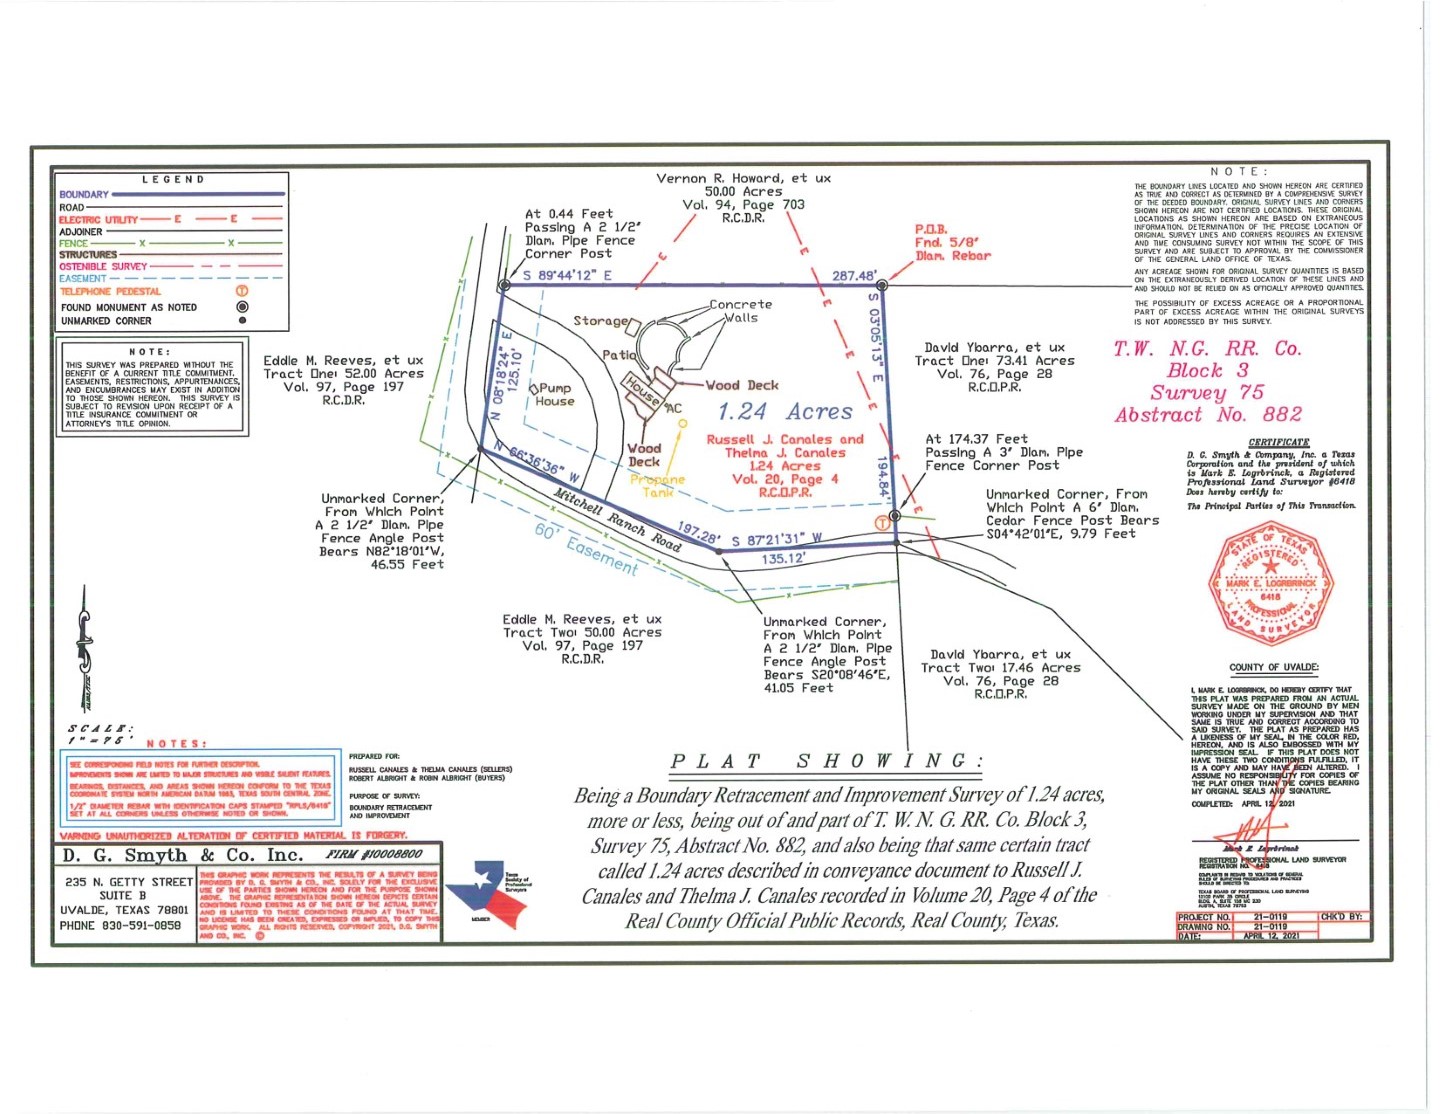 LEGEND
BOUNDARY
ROAD
ELECTRIC UTILITY E E
ADJOINER
FENCE X X
STRUCTURES
OSTENIBLE SURVEY
EASEMENT
TELEPHONE PEDESTAL T
FOUND MONUMENT AS NOTED
UNMARKED CORNER
NOTE:
THIS SURVEY WAS PREPARED WITHOUT THE
BENEFIT OF A CURRENT TITLE COMMITMENT.
EASEMENTS, RESTRICTIONS, APPURTENANCES,
AND ENCUMBRANCES MAY EXIST IN ADDITION
TO THOSE SHOWN HEREON. THIS SURVEY IS
SUBJECT TO REVISION UPON RECEIPT OF A
TITLE INSURANCE COMMITMENT OR
ATTORNEY'S TITLE OPINION.
Vernon R. Howard, et ux
50.00 Acres
Vol. 94, Page 703
R.C.D.R.
At 0.44 Feet
Passing A 2 1/2"
Diam. Pipe Fence
Corner Post
P.O.B.
Fnd. 5/8"
Diam. Rebar
S 89°44'12" E
287.48'
N 08°18'24" E
125.10'
S 03°05'13" E
194.84'
N 66°36'36" W
197.28'
S 87°21'31" W
135.12'
Concrete
Walls
Storage
Patio
Pump
House
House
Wood Deck
AC
Wood
Deck
Propane
Tank
1.24 Acres
Russell J. Canales and
Thelma J. Canales
1.24 Acres
Vol. 20, Page 4
R.C.O.P.R.
Mitchell Ranch Road
60' Easement
T
Eddie M. Reeves, et ux
Tract One: 52.00 Acres
Vol. 97, Page 197
R.C.D.R.
David Ybarra, et ux
Tract One: 73.41 Acres
Vol. 76, Page 28
R.C.O.P.R.
At 174.37 Feet
Passing A 3" Diam. Pipe
Fence Corner Post
Unmarked Corner, From
Which Point A 6" Diam.
Cedar Fence Post Bears
S04°42'01"E, 9.79 Feet
Unmarked Corner,
From Which Point
A 2 1/2" Diam. Pipe
Fence Angle Post
Bears N82°18'01"W,
46.55 Feet
Eddie M. Reeves, et ux
Tract Two: 50.00 Acres
Vol. 97, Page 197
R.C.D.R.
Unmarked Corner,
From Which Point
A 2 1/2" Diam. Pipe
Fence Angle Post
Bears S20°08'46"E,
41.05 Feet
David Ybarra, et ux
Tract Two: 17.46 Acres
Vol. 76, Page 28
R.C.O.P.R.
NOTE:
THE BOUNDARY LINES LOCATED AND SHOWN HEREON ARE CERTIFIED
AS TRUE AND CORRECT AS DETERMINED BY A COMPREHENSIVE SURVEY
OF THE DEEDED BOUNDARY. ORIGINAL SURVEY LINES AND CORNERS
SHOWN HEREON ARE NOT CERTIFIED LOCATIONS. THESE ORIGINAL
LOCATIONS AS SHOWN HEREON ARE BASED ON EXTRANEOUS
INFORMATION. DETERMINATION OF THE PRECISE LOCATION OF
ORIGINAL SURVEY LINES AND CORNERS REQUIRES AN EXTENSIVE
AND TIME CONSUMING SURVEY NOT WITHIN THE SCOPE OF THIS
SURVEY AND ARE SUBJECT TO APPROVAL BY THE COMMISSIONER
OF THE GENERAL LAND OFFICE OF TEXAS.
ANY ACREAGE SHOWN FOR ORIGINAL SURVEY QUANTITIES IS BASED
ON THE EXTRANEOUSLY DERIVED LOCATION OF THESE LINES AND
AND SHOULD NOT BE RELIED ON AS OFFICIALLY APPROVED QUANTITIES.
THE POSSIBILITY OF EXCESS ACREAGE OR A PROPORTIONAL
PART OF EXCESS ACREAGE WITHIN THE ORIGINAL SURVEYS
IS NOT ADDRESSED BY THIS SURVEY.
T.W. N.G. RR. Co.
Block 3
Survey 75
Abstract No. 882
CERTIFICATE
D. G. Smyth & Company, Inc. a Texas
Corporation and the president of which
is Mark E. Logrbrinck, a Registered
Professional Land Surveyor #6418
Does hereby certify to:
The Principal Parties of This Transaction.
STATE OF TEXAS
REGISTERED
MARK E. LOGRBRINCK
6418
PROFESSIONAL
LAND SURVEYOR
COUNTY OF UVALDE:
I, MARK E. LOGRBRINCK, DO HEREBY CERTIFY THAT
THIS PLAT WAS PREPARED FROM AN ACTUAL
SURVEY MADE ON THE GROUND BY MEN
WORKING UNDER MY SUPERVISION AND THAT
SAME IS TRUE AND CORRECT ACCORDING TO
SAID SURVEY. THE PLAT AS PREPARED HAS
A LIKENESS OF MY SEAL, IN THE COLOR RED,
HEREON, AND IS ALSO EMBOSSED WITH MY
IMPRESSION SEAL. IF THIS PLAT DOES NOT
HAVE THESE TWO CONDITIONS FULFILLED, IT
IS A COPY AND MAY HAVE BEEN ALTERED. I
ASSUME NO RESPONSIBILITY FOR COPIES OF
THE PLAT OTHER THAN THE COPIES BEARING
MY ORIGINAL SEALS AND SIGNATURE.
COMPLETED: APRIL 12, 2021
Mark E. Logrbrinck
REGISTERED PROFESSIONAL LAND SURVEYOR
REGISTRATION NO. 6418
PROJECT NO. 21-0119 CHK'D BY:
DRAWING NO. 21-0119
DATE: APRIL 12, 2021
SCALE:
1" = 75'
NOTES:
SEE CORRESPONDING FIELD NOTES FOR FURTHER DESCRIPTION.
IMPROVEMENTS SHOWN ARE LIMITED TO MAJOR STRUCTURES AND VISIBLE SALIENT FEATURES.
BEARINGS, DISTANCES, AND AREAS SHOWN HEREON CONFORM TO THE TEXAS
COORDINATE SYSTEM NORTH AMERICAN DATUM 1983, TEXAS SOUTH CENTRAL ZONE.
1/2" DIAMETER REBAR WITH IDENTIFICATION CAPS STAMPED "RPLS/6418"
SET AT ALL CORNERS UNLESS OTHERWISE NOTED OR SHOWN.
WARNING: UNAUTHORIZED ALTERATION OF CERTIFIED MATERIAL IS FORGERY.
PREPARED FOR:
RUSSELL CANALES & THELMA CANALES (SELLERS)
ROBERT ALBRIGHT & ROBIN ALBRIGHT (BUYERS)
PURPOSE OF SURVEY:
BOUNDARY RETRACEMENT
AND IMPROVEMENT
D. G. Smyth & Co. Inc. FIRM #10008800
235 N. GETTY STREET
SUITE B
UVALDE, TEXAS 78801
PHONE 830-591-0858
THIS GRAPHIC WORK REPRESENTS THE RESULTS OF A SURVEY BEING
PROVIDED BY D. G. SMYTH & CO., INC. SOLELY FOR THE EXCLUSIVE
USE OF THE PARTIES SHOWN HEREON AND FOR THE PURPOSE SHOWN
ABOVE. THE GRAPHIC REPRESENTATION SHOWN HEREON DEPICTS CERTAIN
CONDITIONS FOUND EXISTING AS OF THE DATE OF THE ACTUAL SURVEY
AND IS LIMITED TO THESE CONDITIONS FOUND AT THAT TIME.
NO LICENSE HAS BEEN CREATED, EXPRESSED OR IMPLIED, TO COPY THIS
GRAPHIC WORK. ALL RIGHTS RESERVED, COPYRIGHT 2021, D.G. SMYTH
AND CO., INC. ©
Texas
Society of
Professional
Surveyors
MEMBER
PLAT SHOWING:
Being a Boundary Retracement and Improvement Survey of 1.24 acres,
more or less, being out of and part of T. W. N. G. RR. Co. Block 3,
Survey 75, Abstract No. 882, and also being that same certain tract
called 1.24 acres described in conveyance document to Russell J.
Canales and Thelma J. Canales recorded in Volume 20, Page 4 of the
Real County Official Public Records, Real County, Texas.